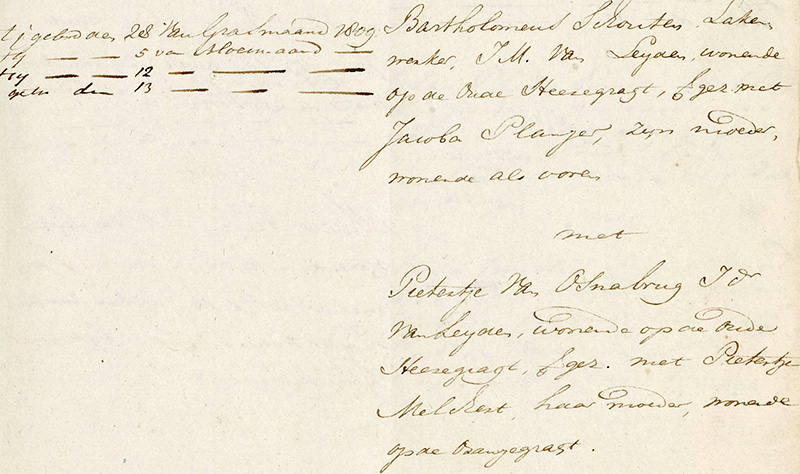 gebooden 28 Van Grasmaand 1809
5 van Bloeimaand
12
getr den 13
Bartholomeus Schouten Laken
werker, J.M. Van Leyden, wonende
op de Oude Heeregragt, gez. met
Jacoba Planjer, zyn moeder,
wonende als voren
met
Pietertje Van Osnabrug J.d.
Van Leyden, wonende op de Oude
Heeregragt, gez. met Pietertje
Melkest, haar moeder, wonende
op de Oranjegragt.